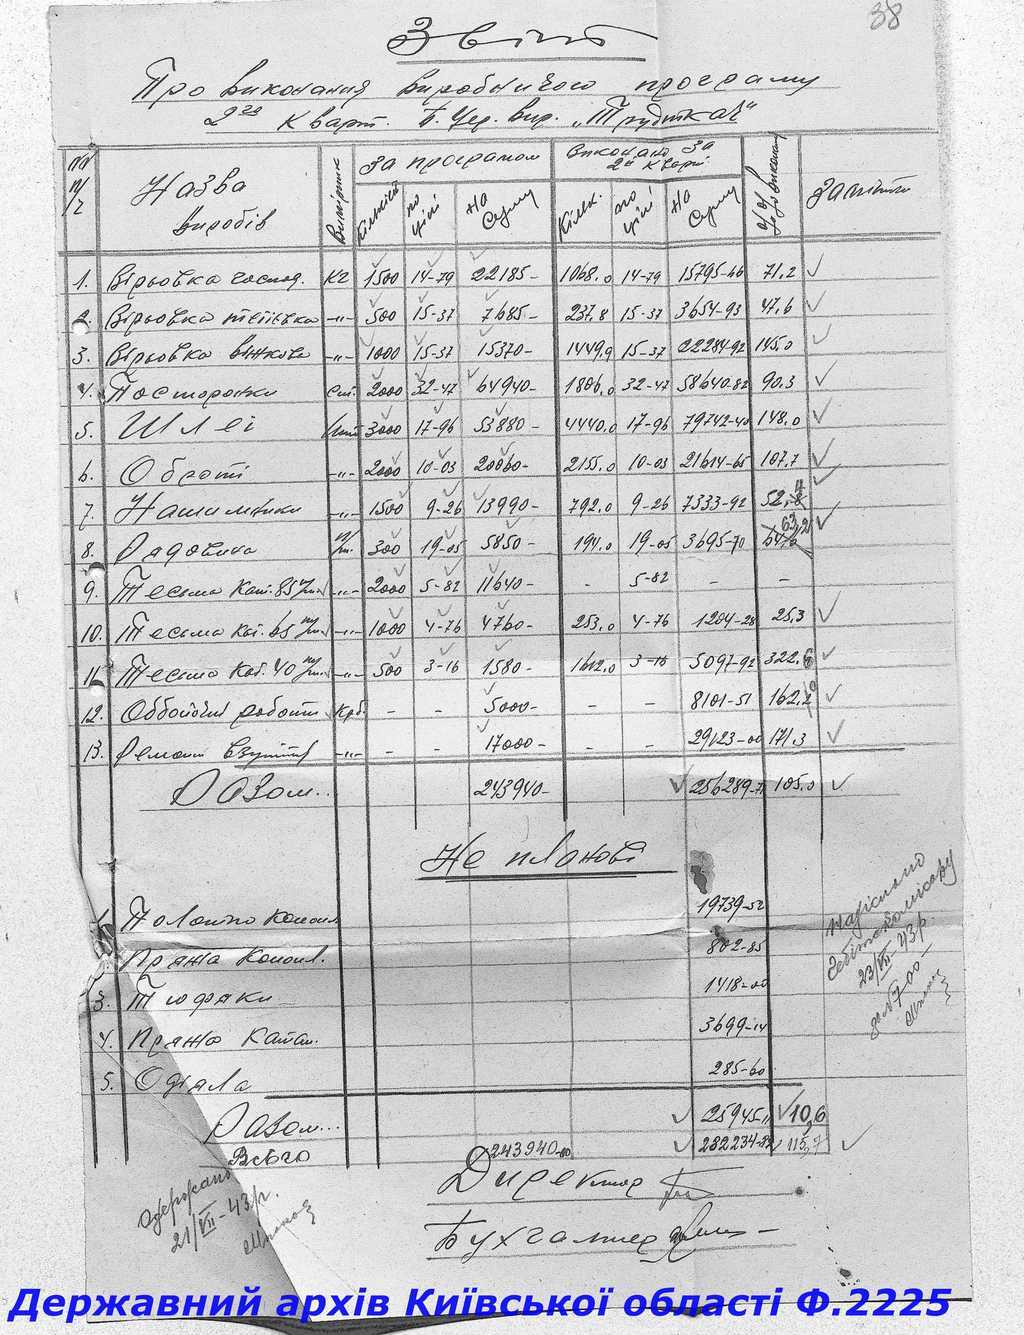 38
Звіт
Про виконання виробничого програму
2го Кварт. Б.Цер. вир. „Трудткач"
№ п/ч Назва виробів Вимірник За програмом Виконано за 2й кварт. Замітки
Кількість по ціні На Суму Кільк. по ціні На Суму
1. Вірьовка господ. кг 1500 14-79 22185- 1068,0 14-79 15795-66 71,2
2. Вірьовка -„- 500 15-37 7685- 237,8 15-37 3654-93 47,6
3. Вірьовка віжкова -„- 1000 15-37 15370- 1449,9 15-37 22284-92 145,0
4. Посторонки 2000 32-47 64940- 1806,0 32-47 58640-82 90,3
5. Шлеї шт 3000 17-96 53880- 4440,0 17-96 79742-40 148,0
6. Оброті -„- 2000 10-03 20060- 2155,0 10-03 21614-65 107,7
7. Нашильники -„- 1500 9-26 13990- 792,0 9-26 7333-92 52,4
8. Рядовина п/м. 300 19-05 5850- 194,0 19-05 3695-70 63,2
9. Тесьма кат. 85 м/м -„- 2000 5-82 11640- - 5-82 - -
10. Тесьма кат. 65 м/м -„- 1000 4-76 4760- 253,0 4-76 1204-28 25,3
11. Тесьма кат. 40 м/м -„- 500 3-16 1580- 1612,0 3-16 5097-92 322,6
12. Оббойочні роботи Крб. - - 5000- - - 8101-51 162,0
13. Ремонт взуття -„- - - 17000- - - 29123-00 171,3
Разом.. 243940- 256289-71 105,0
Не планові
1. Полотно конопл. 19739-52
Пряжа конопл. 802-85
3. Тюфяки 1418-00
4. Пряжа катан. 3699-14
5. Одіяла 285-60
Разом... 25945-11 10,6
Всього 243940-00 282234-82 115,7
Надіслано
Гебітскомісару
23/VII-43р.
№ 700-
Директор
Бухгалтер
Одержано
21/VII-43р.
Державний архів Київської області Ф.2225